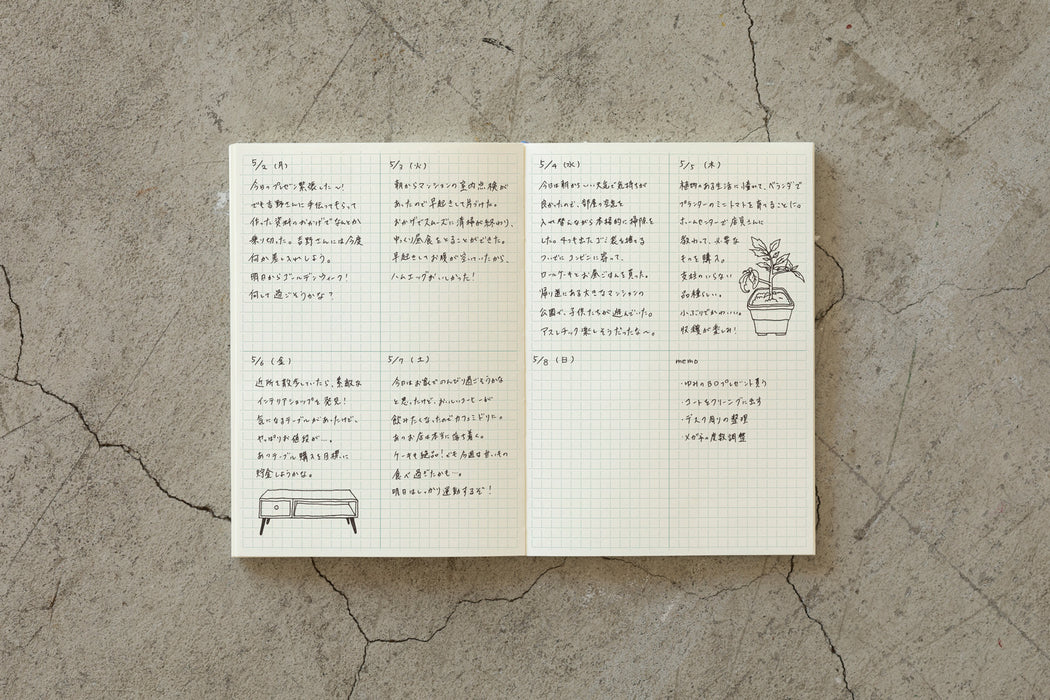 5/2 (月)
今日のプレゼン緊張した〜!
でも吉野さんに手伝ってもらって
作った資料のおかげでなんとか
乗り切った。吉野さんには今度
何か差し入れしよう。
明日からゴールデンウィーク!
何して過ごそうかな?
5/3 (火)
朝からマンションの室内点検が
あったので早起きして片づけた。
おかげでスムーズに清掃が終わり、
ゆっくり昼食をとることができた。
早起きしてお腹が空いていたから、
ハムエッグがおいしかった!
5/6 (金)
近所を散歩していたら、素敵な
インテリアショップを発見!
気になるテーブルがあったけど、
やっぱりお値段が…。
あのテーブル購入を目標に
貯金しようかな。
5/7 (土)
今日はお家でのんびり過ごそうかな
と思ったけど、おいしいコーヒーが
飲みたくなったのでカフェミドリに。
あのお店は本当に落ち着く。
ケーキも絶品!でも今週は甘いもの
食べ過ぎたかも…。
明日はしっかり運動するぞ!
5/4 (水)
今日は朝からいい天気で気持ちが
良かったので、部屋の空気を
入れ替えながら本格的に掃除を
した。4つも出たゴミ袋を捨てる
ついでにコンビニに寄って、
ロールケーキとお昼ごはんを買った。
帰り道にある大きなマンションの
公園で、子供たちが遊んでいた。
アスレチック楽しそうだったな〜。
5/5 (木)
植物のある生活に憧れて、ベランダで
プランターのミニトマトを育てることに。
ホームセンターで店員さんに
教わって、必要な
ものを購入。
支柱のいらない
品種らしい。
小ぶりでかわいい。
収穫が楽しみ!
5/8 (日)
memo
・ゆみのBDプレゼント買う
・コートをクリーニングに出す
・デスク周りの整理
・メガネの度数調整